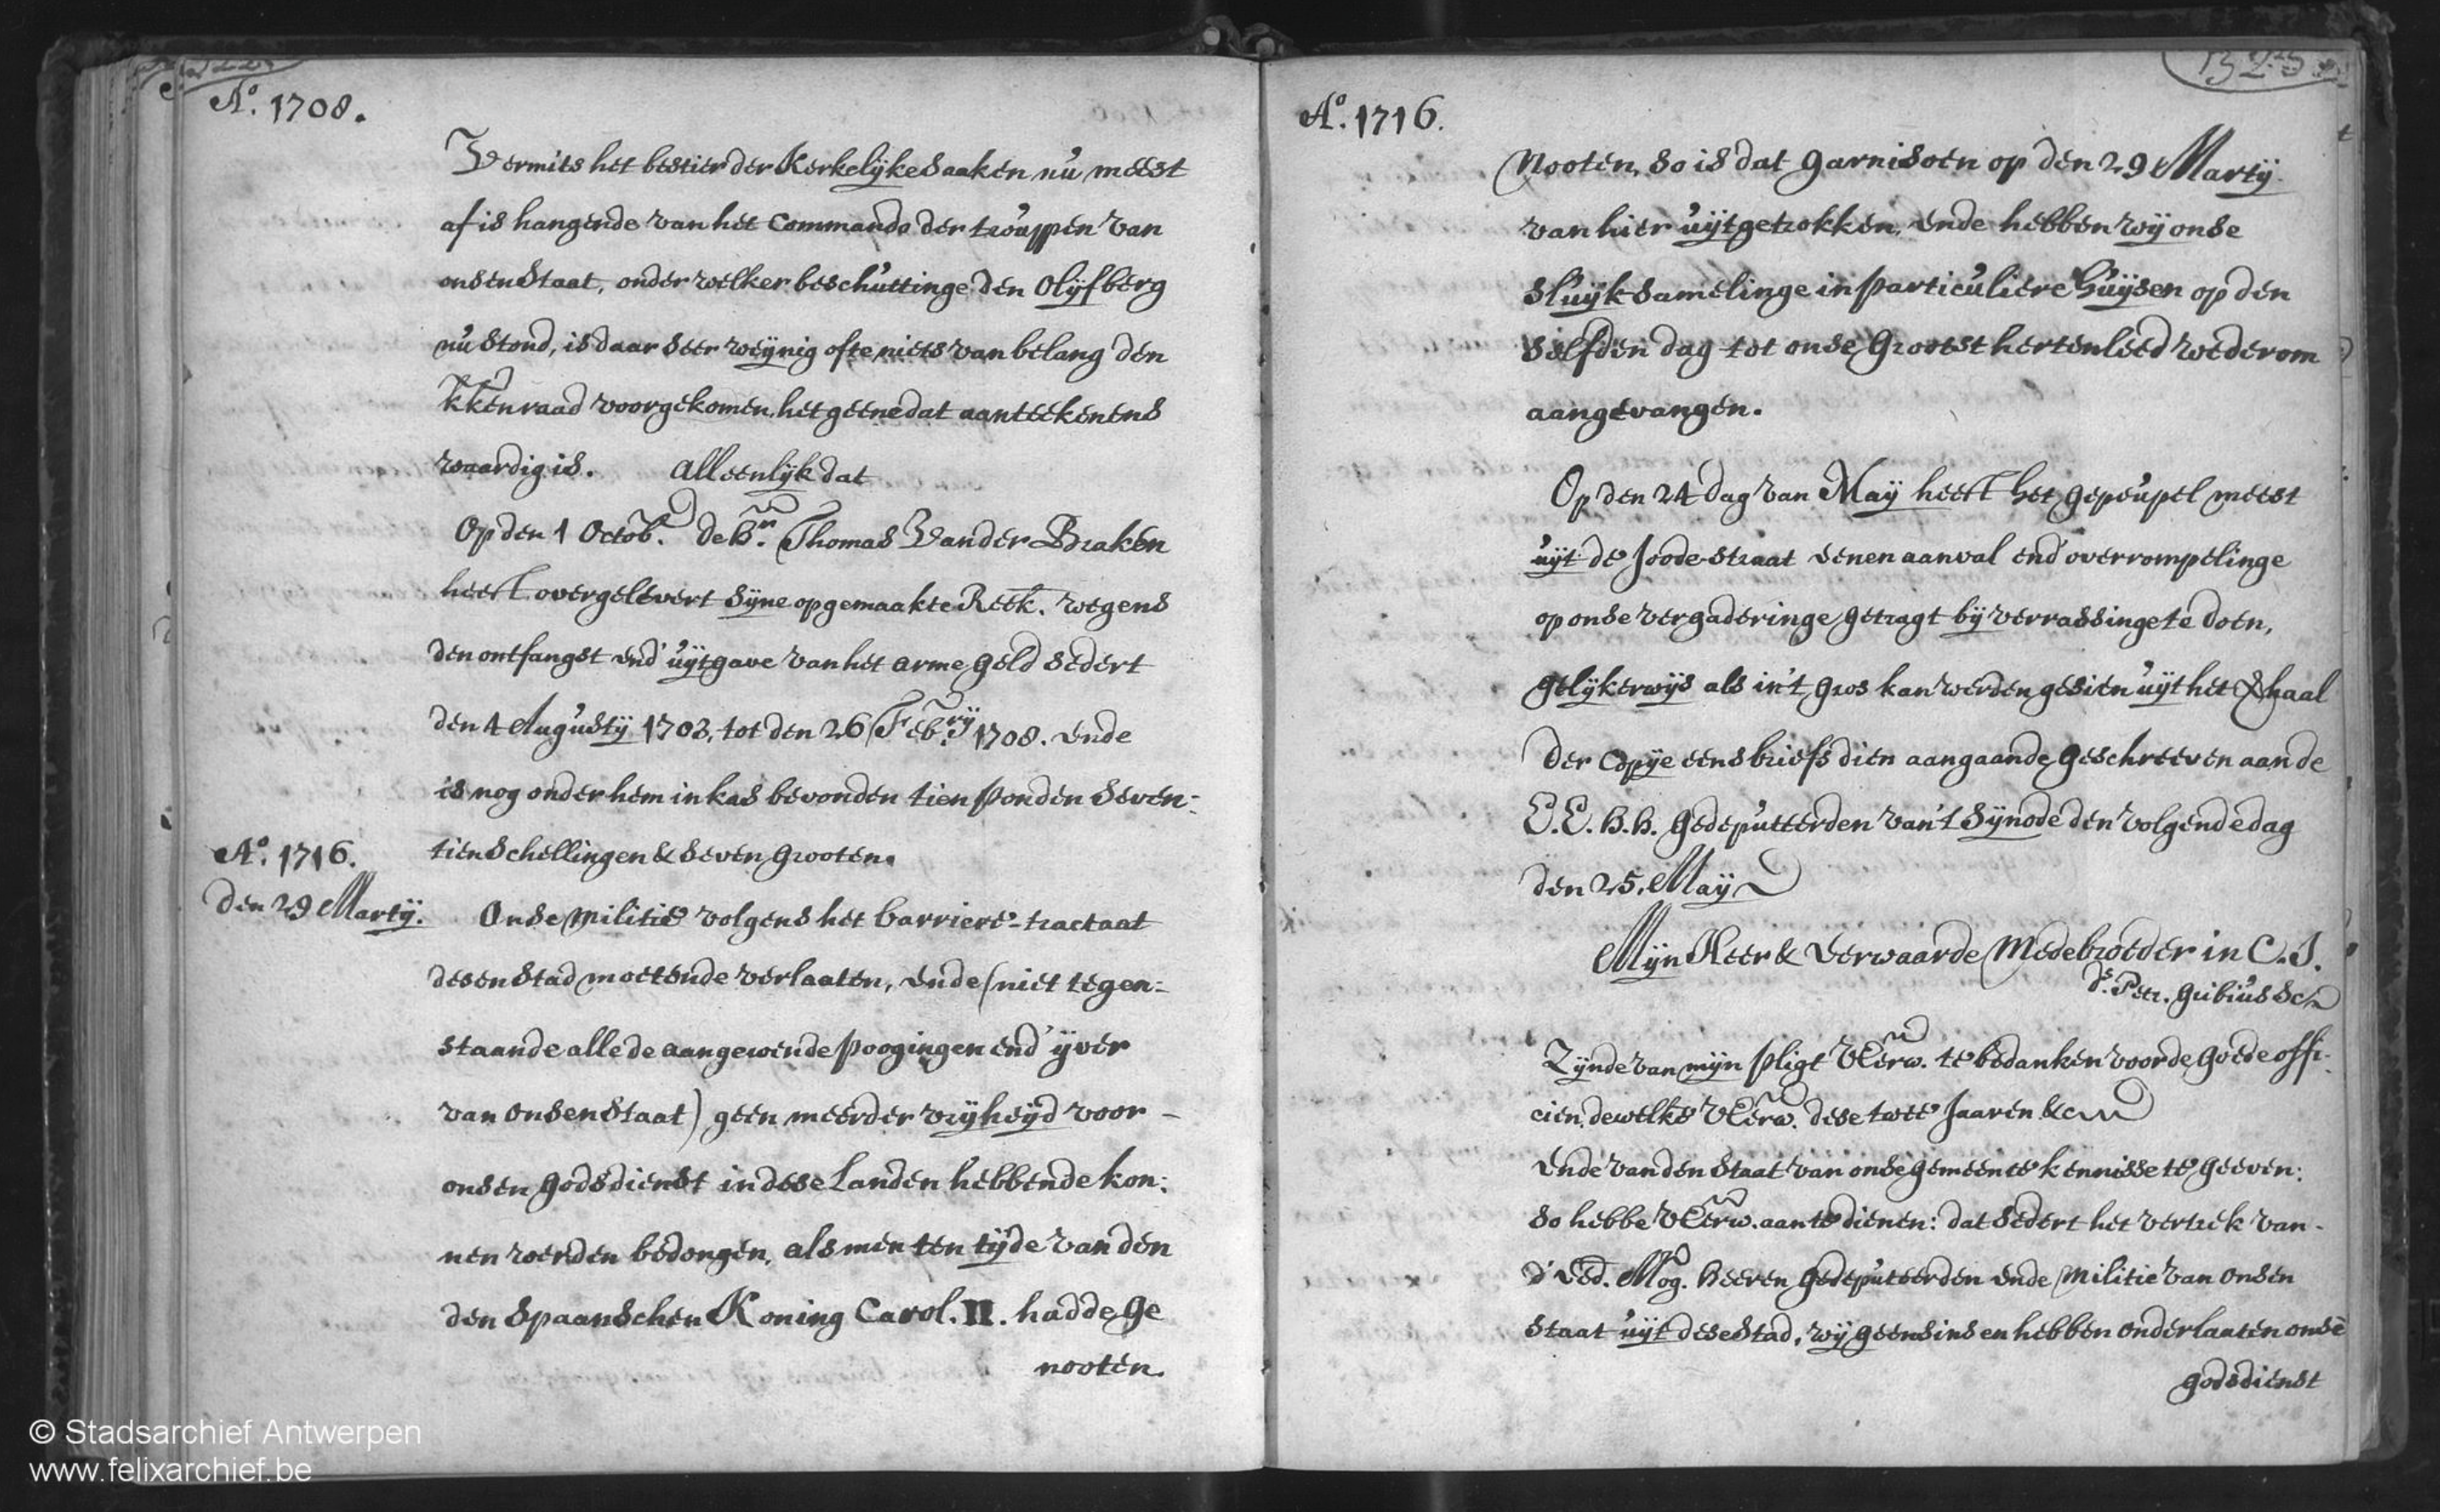 A.o 1708.
Vermits het bestier der Kerkelijke Saaken nu meest
af is hangende van het Commando der trouppen van
onsen Staat, onder welker beschuttinge den Olijfberg
nu stond, is daar seer weijnig ofte niets van belang den
kkenraad voorgekomen, het geene dat aanteekenens
waardig is. Alleenlijk dat
Op den 1 Octob. de Br. Thomas Vander Braken
heeft overgelevert sijne opgemaakte Reek. wegens
den ontfangst end' uijtgave van het arme geld sedert
den 4 Augustij 1703, tot den 26 Feb.rij 1708. ende
is nog onder hem in kas bevonden tien ponden seven-
tien Schellingen & seven grooten.
A.o 1716.
den 29 Martij.
Onse militie volgens het barriere-tractaat
desen Stad moetende verlaaten, ende (niet tegen-
staande alle de aangewende poogingen end' ijver
van onsen Staat) geen meerder vrijheijd voor -
onsen godsdienst in dese Landen hebbende kon-
nen werden bedongen, als men ten tijde van den
den Spaanschen Koning Carol. II. hadde ge
nooten.
A.o 1716.
nooten, so is dat garnisoen op den 29 Martij.
van hier uijtgetrokken, ende hebben wij onse
sluijksamelinge in particuliere huijsen op den
selfden dag tot onse grootst hertenleed wederom
aangevangen.
Op den 24 dag van Maij heeft het gepeupel meest
uijt de Joode-straat eenen aanval end' overrompelinge
op onse vergaderinge getragt bij verrassinge te doen,
gelijkerwijs als in't gros kan werden gesien uijt het
der Copije eens briefs dien aangaande geschreeven aan de
E.E. h.h. gedeputeerden van't Sijnode den volgende dag
den 25. Maij
Mijn Heer & Eerwaarde Medebroeder in C. J.
ds. Petr. gribius &c
Zijnde van mijn pligt UEerw. te bedanken voor de goede offi-
cien, dewelke UEerw. dese twee Jaaren &c
ende van den Staat van onse gemeente kennisse te geeven:
so hebbe UEerw. aan te dienen: dat sedert het vertrek van -
d' Ed. Mog. heeren gedeputeerden ende militie van onsen
Staat uijt dese Stad, wij geensins en hebben onderlaaten onse
godsdienst
© Stadsarchief Antwerpen
www.felixarchief.be